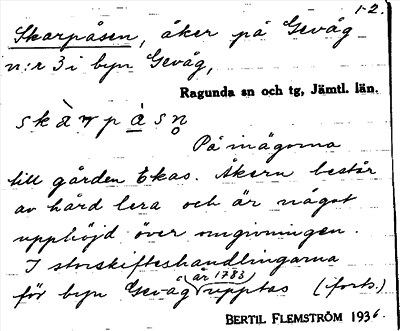 1-2.
Skarpåsen, åker på Gevåg
n:r 3 i byn Gevåg,
Ragunda sn och tg, Jämtl. län.
skàrpásn̥
På inägorna
till gården Ekas. Åkern består
av hård lera och är något
upphöjd över omgivningen.
I storskifteshandlingarna
för byn Gevåg (år 1783) upptas (forts.)
BERTIL FLEMSTRÖM 1936.